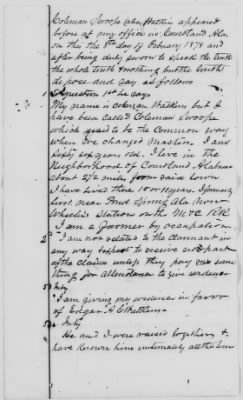 Coleman Swoope alias Watkins appeared
before at my office in Courtland, Ala
on this the 8th day of February 1878 and
after being duly sworn to speak the truth
the whole truth & nothing but the truth
depose and say as follows
Question 1st he says
My name is Coleman Watkins but I
have been called Coleman Swoope
which used to be the common way
when we changed masters. I am
fifty six years old. I live in The
Neighborhood of Courtland Alabama
about 2½ miles from said town
I have lived there 10 or 11 years. I formerly
lived near Pond Spring Ala now
Wheeler's Station on the M & C RR
I am a farmer by occupation.
2 I am not related to the claimant in
any way to receive no part
of the claim unless they pay me some
thing for attendance to give evidence
3d Inty
I am giving my evidence in favor
of Edgar A C Watkins.
5th Inty
He and I were raised together &
have known him intimately all the time